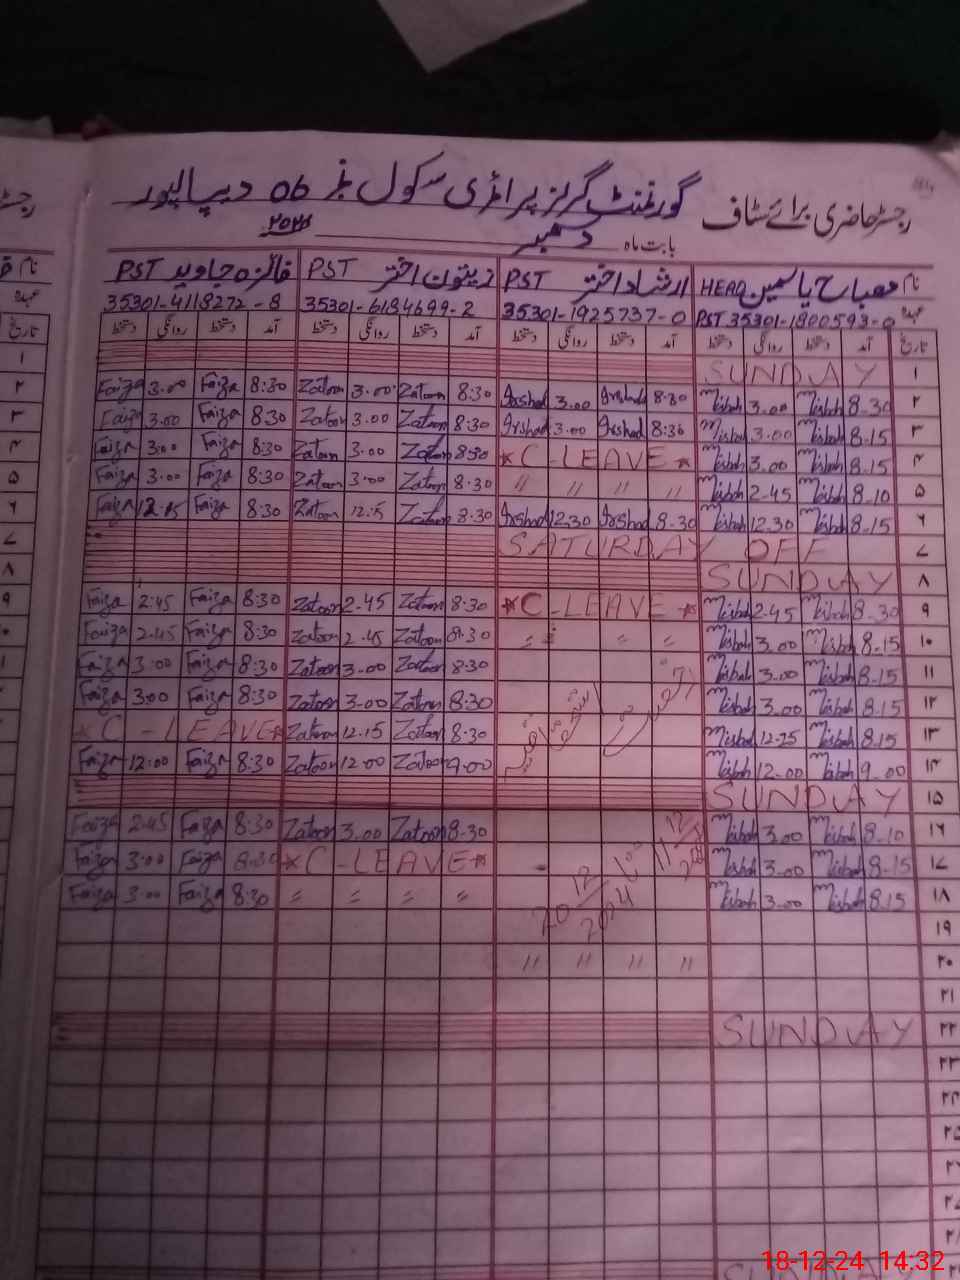 رجسٹر حاضری برائے سٹاف گورنمنٹ گرلز پرائمری سکول نمبر 06 دیپالپور
بابت ماہ دسمبر ۲۰۲۴
نام مصباح یاسمین HEAD ارشاد اختر PST زیتون اختر PST فائزہ جاوید PST
عہدہ PST 35301-1800593-0 35301-1925737-0 35301-6184699-2 35301-4118272-8
تاریخ آمد دستخط روانگی دستخط آمد دستخط روانگی دستخط آمد دستخط روانگی دستخط آمد دستخط روانگی دستخط
۱ SUNDAY
۲ 8-30 Misbah 3-00 Misbah 8-30 Irshad 3-00 Irshad 8:30 Zatoon 3-00 Zatoon 8:30 Faiza 3-00 Faiza
۳ 8-15 Misbah 3-00 Misbah 8:30 Irshad 3-00 Irshad 8:30 Zatoon 3-00 Zatoon 8:30 Faiza 3-00 Faiza
۴ 8-15 Misbah 3-00 Misbah *C-LEAVE* 8:30 Zatoon 3-00 Zatoon 8:30 Faiza 3:00 Faiza
۵ 8-10 Misbah 2-45 Misbah " " " " 8-30 Zatoon 3-00 Zatoon 8:30 Faiza 3-00 Faiza
۶ 8-15 Misbah 12-30 Misbah 8-30 Irshad 12-30 Irshad 8:30 Zatoon 12:15 Zatoon 8:30 Faiza Faiza
۷ SATURDAY OFF
۸ SUNDAY
۹ 8-30 Misbah 2-45 Misbah *C-LEAVE* 8:30 Zatoon 2-45 Zatoon 8:30 Faiza 2:45 Faiza
۱۰ 8-15 Misbah 3-00 Misbah " " " " 8:30 Zatoon 2-45 Zatoon 8:30 Faiza 2-45 Faiza
۱۱ 8-15 Misbah 3-00 Misbah 8:30 Zatoon 3-00 Zatoon 8:30 Faiza 3:00 Faiza
۱۲ 8-15 Misbah 3-00 Misbah 8:30 Zatoon 3-00 Zatoon 8:30 Faiza 3:00 Faiza
۱۳ 8-15 Misbah 12-25 Misbah 8:30 Zatoon 12-15 Zatoon *C-LEAVE*
۱۴ 9-00 Misbah 12-00 Misbah 9-00 Zatoon 12-00 Zatoon 8:30 Faiza 12:00 Faiza
۱۵ SUNDAY
۱۶ 8-10 Misbah 3-00 Misbah 8-30 Zatoon 3-00 Zatoon 8:30 Faiza 2-45 Faiza
۱۷ 8-15 Misbah 3-00 Misbah *C-LEAVE* 8:30 Faiza 3:00 Faiza
۱۸ 8-15 Misbah 3-00 Misbah 20 12/2024 " " " " 8:30 Faiza 3-00 Faiza
۱۹
۲۰ " " " "
۲۱
۲۲ SUNDAY
۲۳
۲۴
۲۵
۲۶
۲۷
۲۸
SUNDAY
18-12-24 14:32